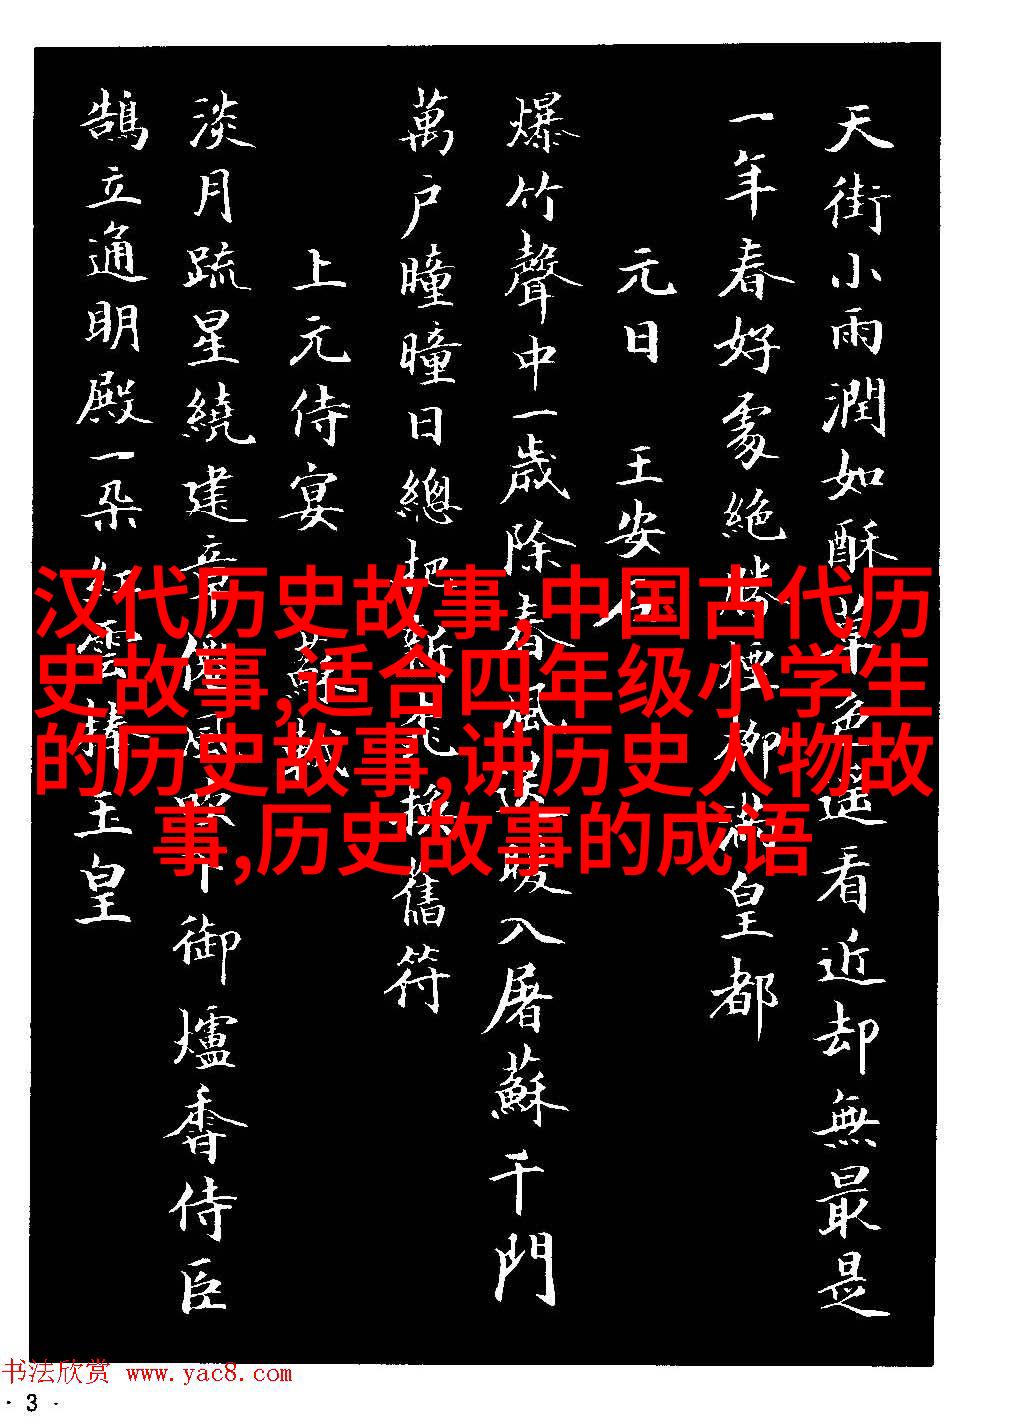 天街小雨潤如酥草色遥看近却無最是
一年春好處絶勝煙柳滿皇都
元日 王安石
爆竹聲中一歲除春風送暖入屠蘇千門
萬户曈曈日總把新桃換舊符
上元侍宴 蘇軾
淡月疏星繞建章仙風吹下御爐香侍臣
鵠立通明殿一朵紅雲捧玉皇
汉代历史故事,中国古代历
史故事,适合四年级小学生
的历史故事,讲历史人物故
事,历史故事的成语
书法欣赏 www.yac8.com
· 3 ·